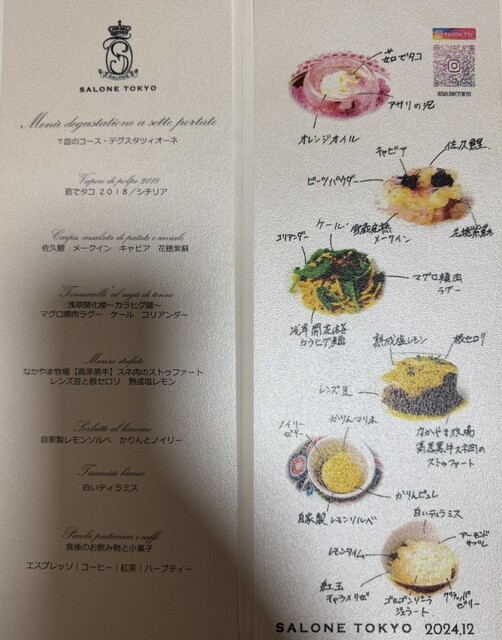 SALONE
SALONE TOKYO
Menù degustatione a sette portate
7皿のコース・デグスタツィオーネ
Vapore di polpo 2018
茹でタコ 2018/シチリア
Carpa, insalata di patate e caviale
佐久鯉 メークイン キャビア 花穂紫蘇
Tonnarelli al ragù di tonno
浅草開化楼~カラヒグ麺~
マグロ頬肉ラグー ケール コリアンダー
Manzo stufato
なかやま牧場【高原黒牛】スネ肉のストゥファート
レンズ豆と根セロリ 熟成塩レモン
Sorbetto al limone
自家製レモンソルベ かりんとノイリー
Tiramisù bianco
白いティラミス
Piccola pasticceria e caffè
食後のお飲み物と小菓子
エスプレッソ|コーヒー|紅茶|ハーブティー
@SALONETOKYO
茹でタコ
アサリの泡
オレンジオイル
キャビア
佐久鯉
ビーツパウダー
メークイン
花穂紫蘇
コリアンダー
ケール
マグロ頬肉
ラグー
浅草開花楼
カラヒグ麺
熟成塩レモン
根セロリ
レンズ豆
なかやま牧場
高原黒牛スネ肉の
ストゥファート
ノイリー
ゼリー
かりんマリネ
かりんピュレ
自家製レモンソルベ
白いティラミス
アーモンド
サブレ
レモンタイム
紅玉
キャラメリゼ
ゴルゴンゾーラ
ジェラート
グラッパ
ゼリー
SALONE TOKYO 2024.12